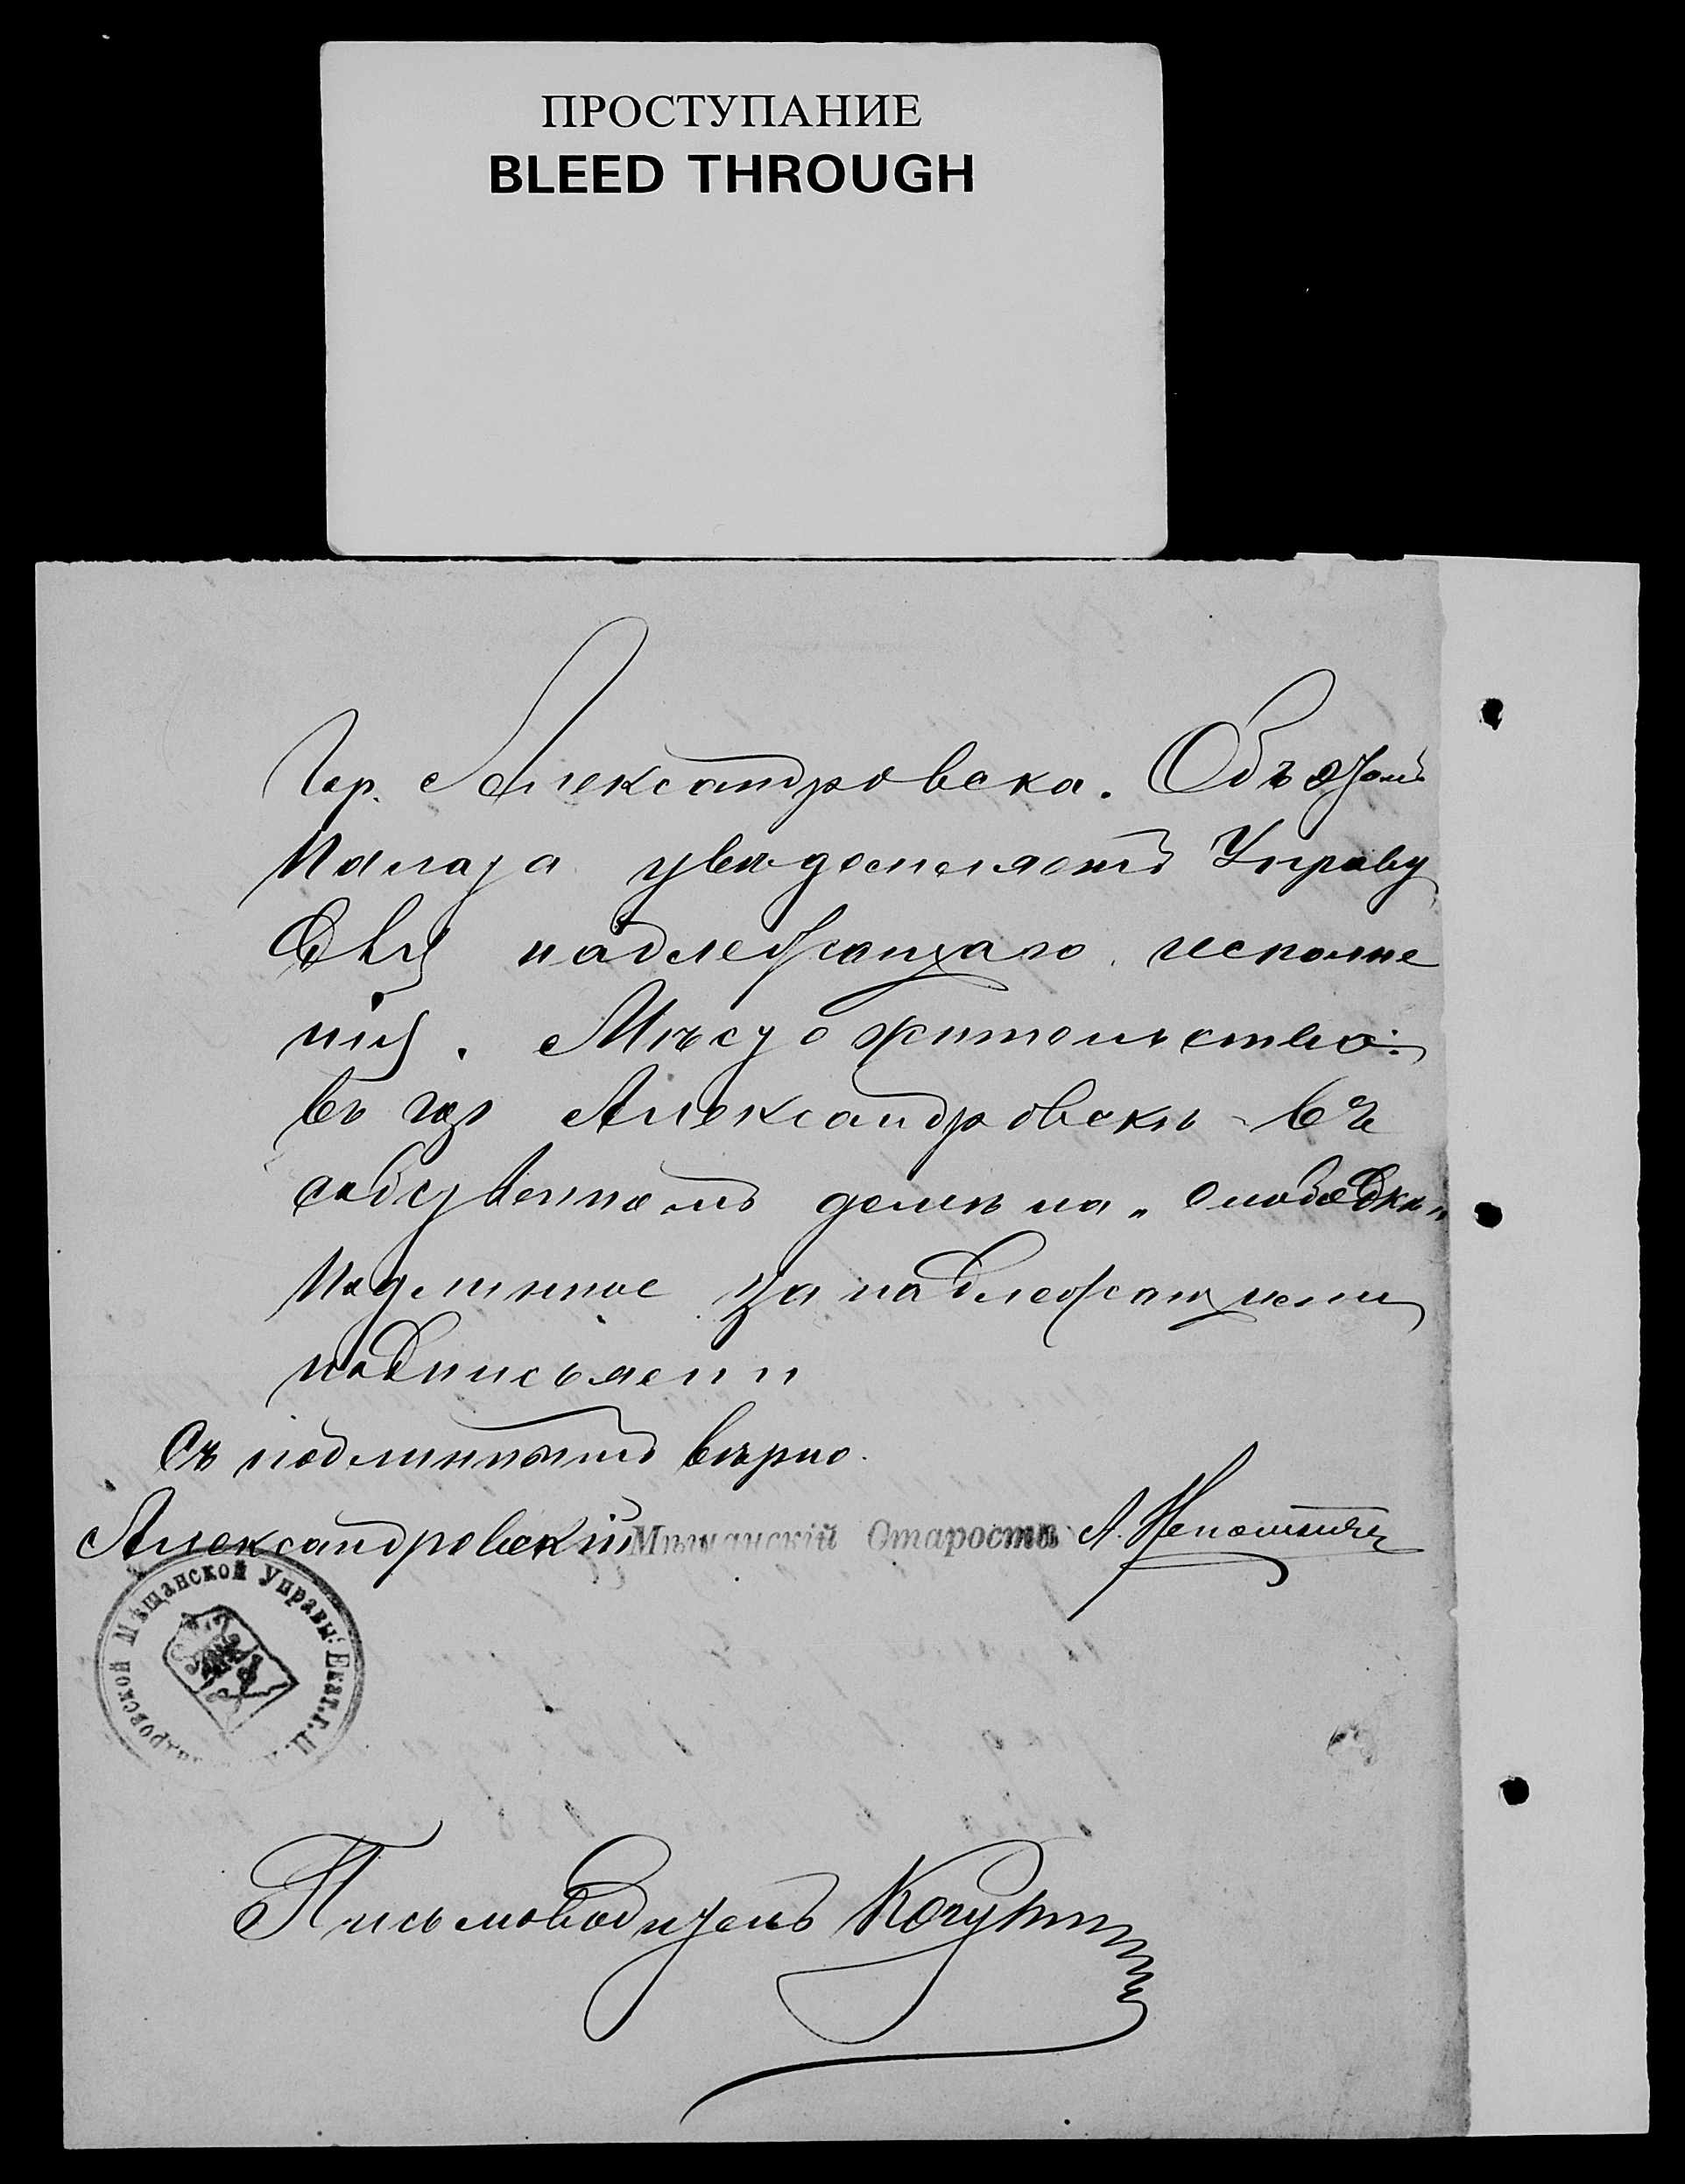 ПРОСТУПАНИЕ
BLEED THROUGH
гор. Александровска. Объ этомъ
Палата увѣдомляетъ Управу
для надлежащаго исполне
нія. Мѣстожительство:
въ гор Александровскѣ въ
собственномъ домѣ на „Слободкѣ„
Подлинное за надлежащими
подписями
Съ подлиннымъ вѣрно.
Александровскій Мѣщанскій Староста А.
Александровской Мѣщанской Управы. Екат. г.
Письмоводитель